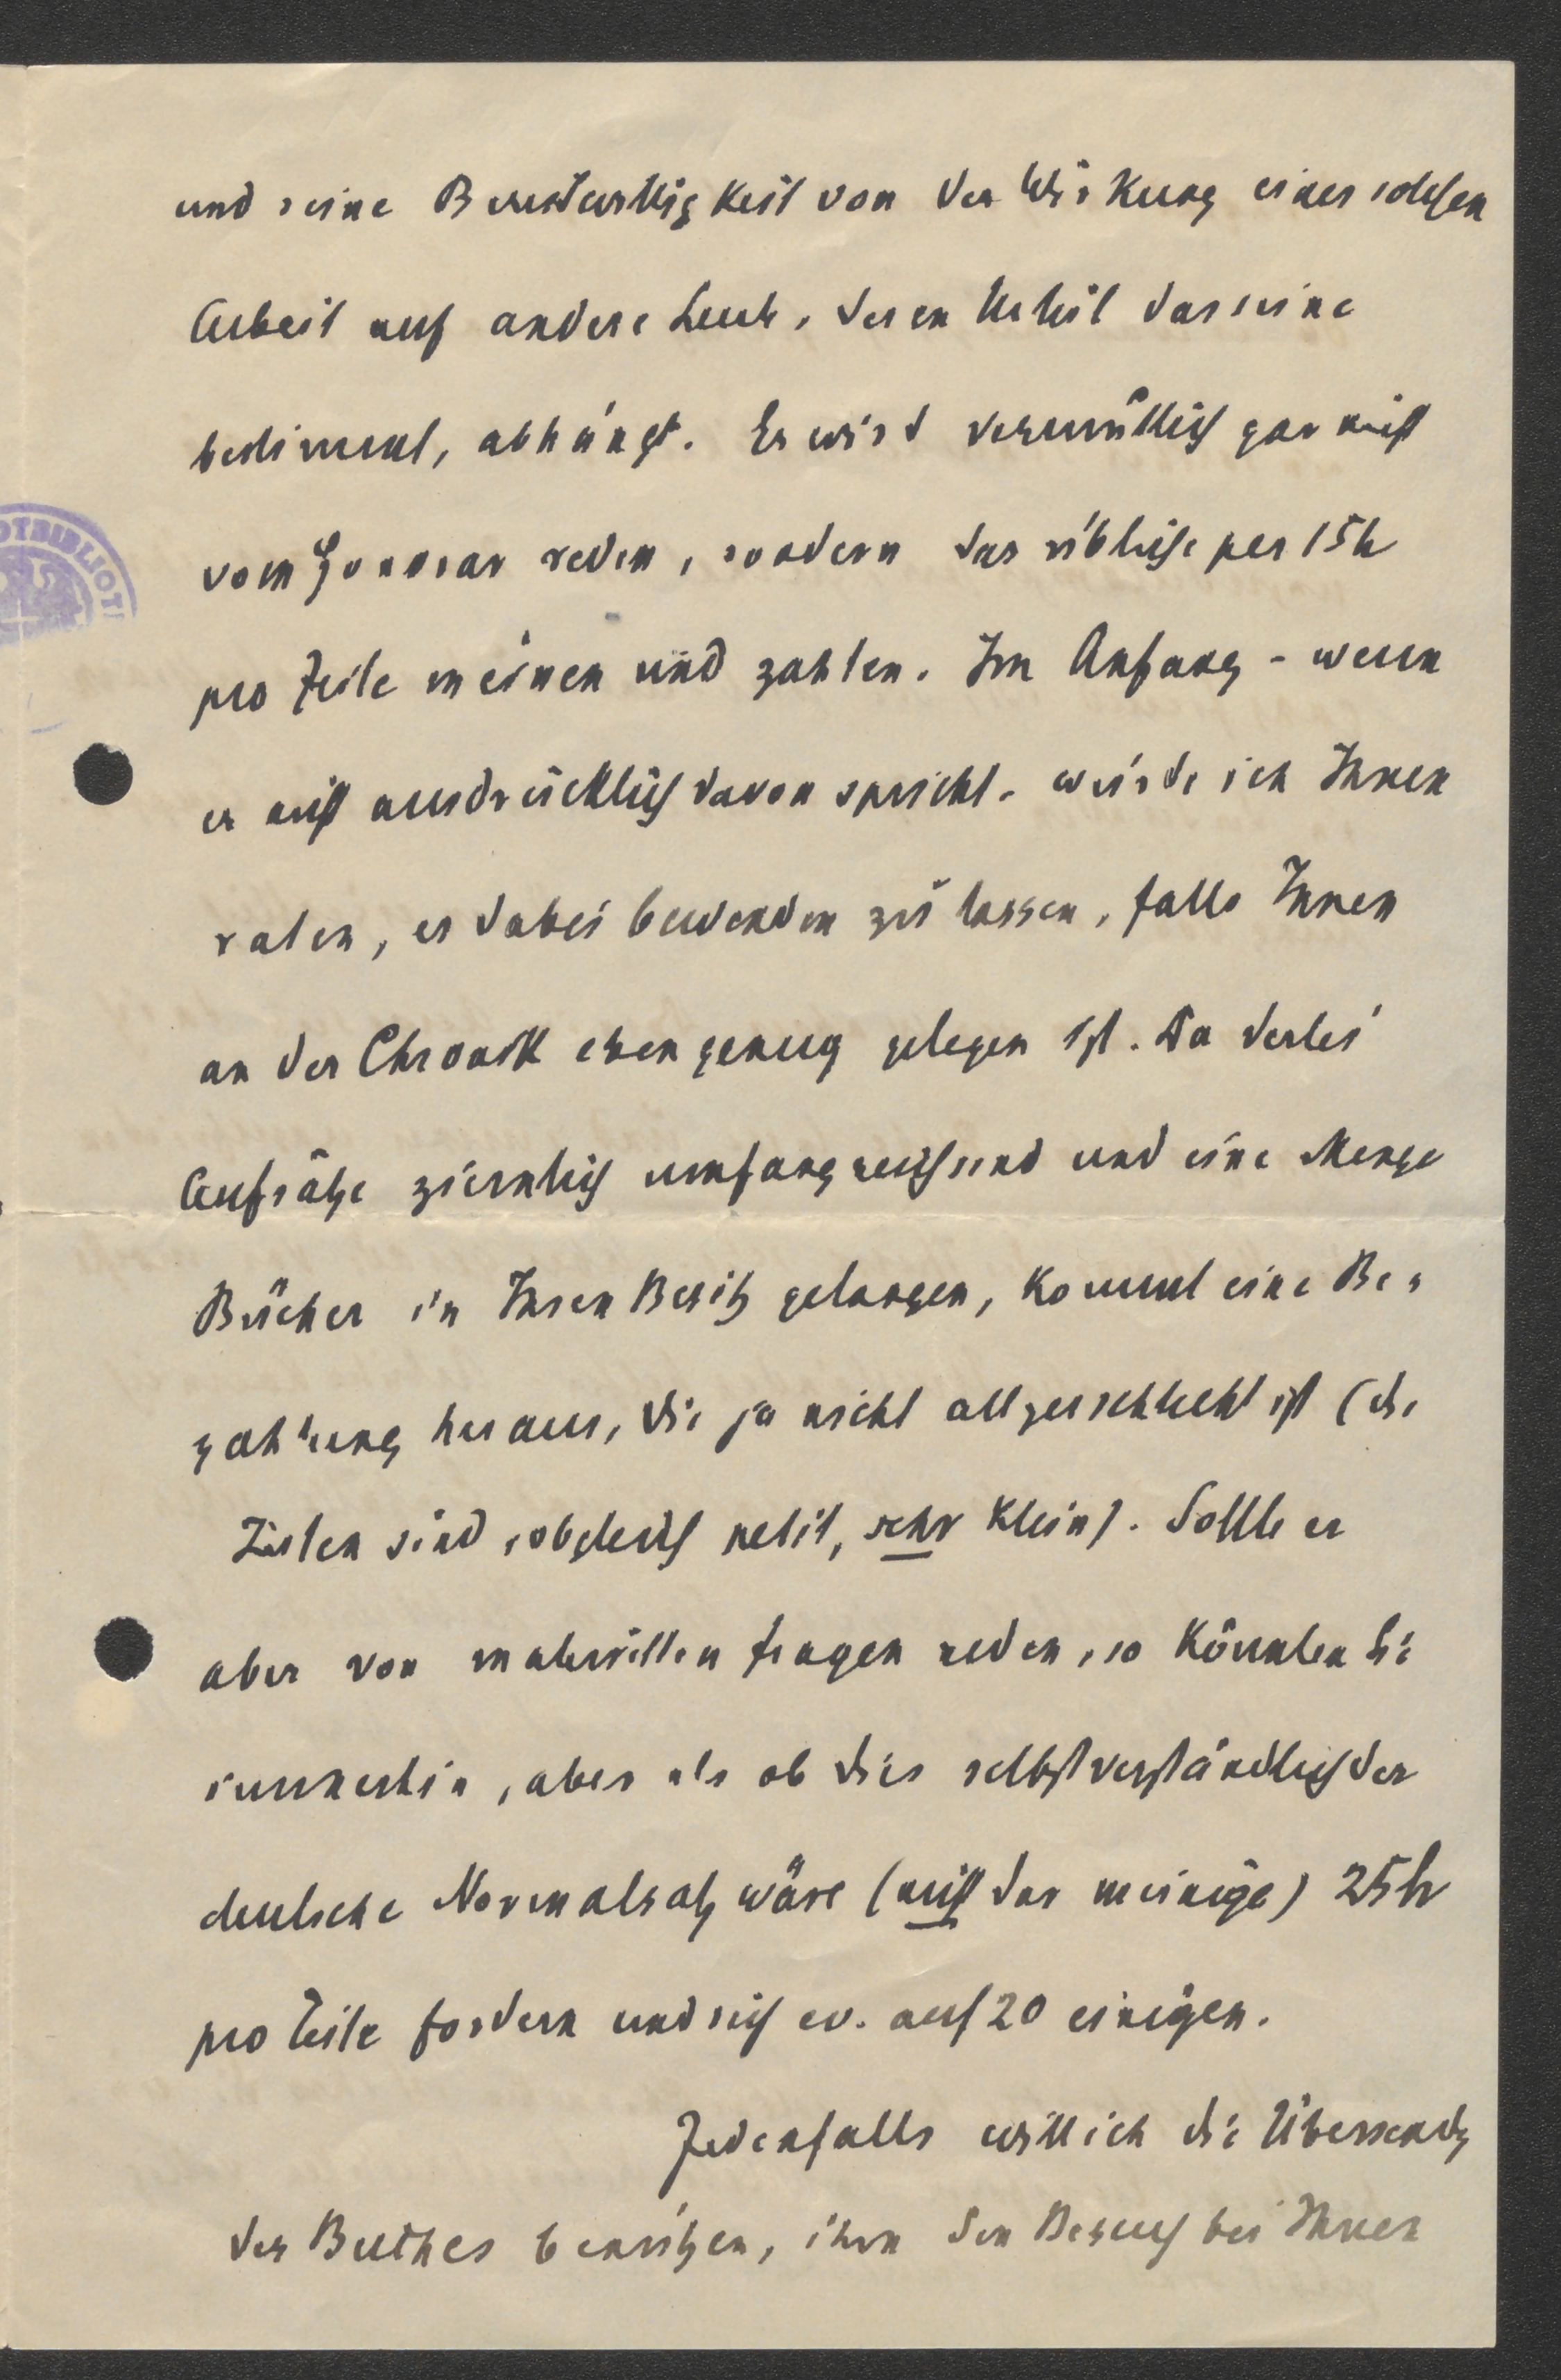 und seine Bereitwilligkeit von der Wirkung einer solchen
Arbeit auf andere Leute, deren Urteil das seine
bestimmt, abhängt. Er wird vermutlich gar nicht
vom Honorar reden, sondern das übliche per 15 h
pro Zeile meinen und zahlen. Im Anfang - wenn
er nicht ausdrücklich davon spricht - würde ich Ihnen
raten, es dabei bewenden zu lassen, falls Ihnen
an der Chronik eben genug gelegen ist. Da derlei
Aufsätze ziemlich umfangreich sind und eine Menge
Bücher in Ihren Besitz gelangen, kommt eine Be-
zahlung heraus, die ja nicht allzu schlecht ist (die
Zeilen sind, obgleich petit, sehr klein). Sollte er
aber von materiellen Fragen reden, so könnten Sie
immerhin, aber als ob dies selbstverständlich der
deutsche Normalsatz wäre (nicht der meinige) 25 h
pro Zeile fordern und sich ev. auf 20 einigen.
Jedenfalls will ich die Übersendg
des Buches benützen, ihm den Besuch bei Ihnen